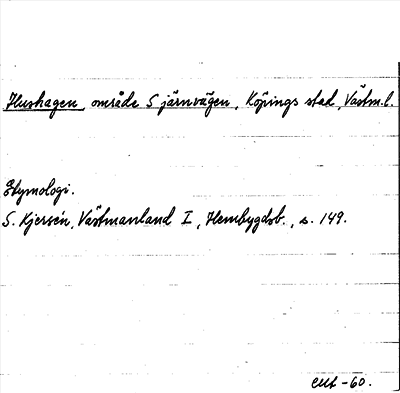 Hushagen, område S järnvägen, Köpings stad, Västm.l.
Etymologi.
S. Kjersén, Västmanland I, Hembygdsb., s. 149.
-60.